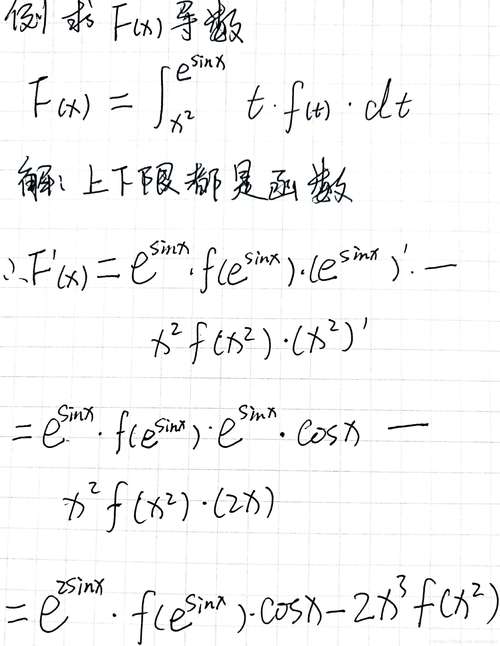 例 求 F(x) 导数
F(x) = ∫_{x²}^{e^{sinx}} t·f(t)·dt
解: 上下限都是函数
∴F'(x) = e^{sinx}·f(e^{sinx})·(e^{sinx})'·—
x²f(x²)·(x²)'
= e^{sinx}·f(e^{sinx})·e^{sinx}·cosx —
x²f(x²)·(2x)
= e^{2sinx}·f(e^{sinx})·cosx-2x³f(x²)